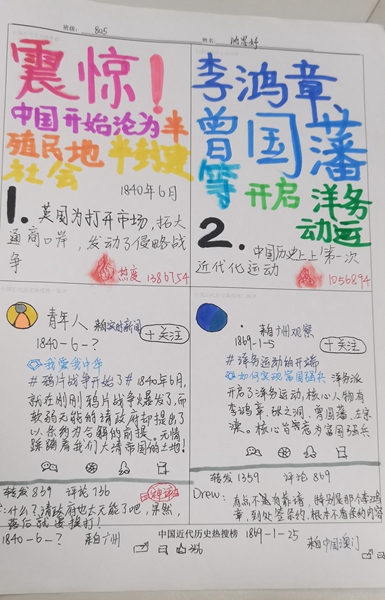 班级： 805
姓名：
震惊！
中国开始沦为半
殖民地半封建
社会
1840年6月
1. 英国为打开市场，拓大
通商口岸，发动了侵略战
争
热度 1386754
李鸿章
曾国藩
等 开启 洋务
动运
2. 中国历史上上第一次
近代化运动
1056894
青年人 来自实时新闻
1840-6-? +关注
#鸦片战争开始了# 1840年6月，
就在刚刚鸦片战争爆发了，而
软弱无能的清政府却提出了
以条约为合解的前提。无情
踩踏着我们大清帝国的土地！
转发 859 评论 136
：什么？清政府也太无能了吧，果然，
落后就要挨打！
1840-6-? 来自广州
来自广州观察
1869-1-5 +关注
#洋务运动的开端
#如何实现富国强兵 洋务派
开启了洋务运动，核心人物有
李鸿章、张之洞、曾国藩、左宗
棠。核心旨意为富国强兵
转发 1359 评论 869
Drew：
有点不太靠谱，特别是那个李鸿
章，到处签条约，根本不看条约内容
中国近代历史热搜榜
1869-1-25
来自中国澳门